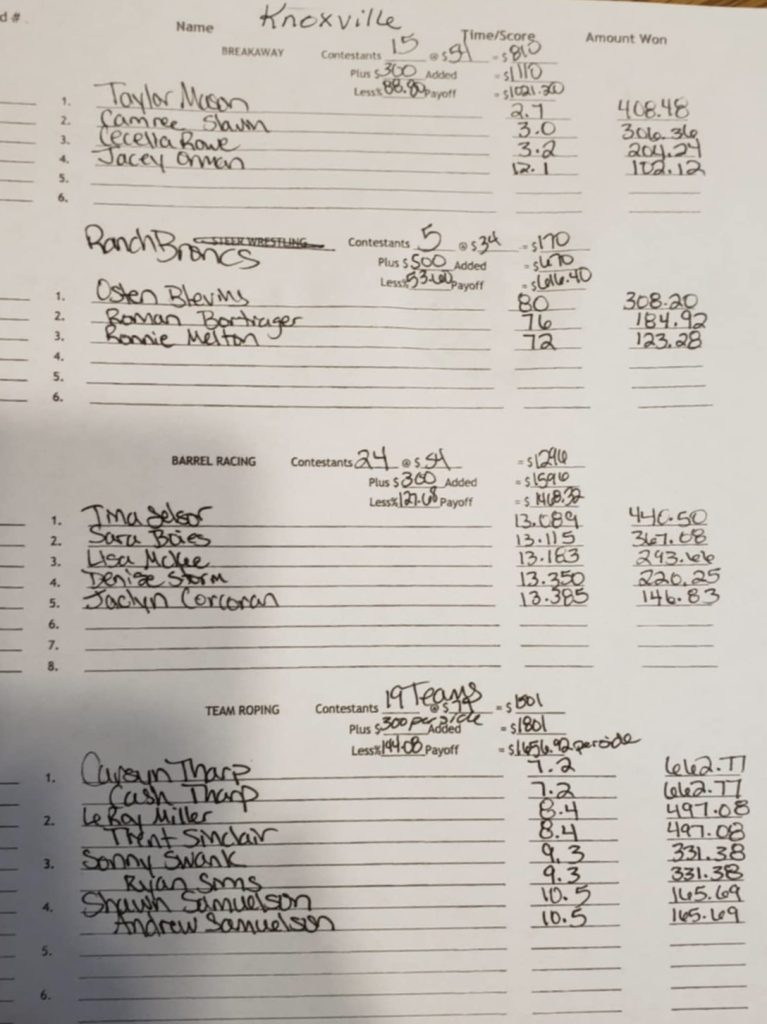 d #
Name Knoxville
Time/Score Amount Won
BREAKAWAY Contestants 15 @ $ 54 = $ 810
Plus $ 300 Added = $ 1110
Less% 88.80 Payoff = $ 1021.20
1. Taylor Munson 2.7 408.48
2. Camree Slavin 3.0 306.36
3. Cecelia Rowe 3.2 204.24
4. Jacey Orman 12.1 102.12
5.
6.
Ranch Broncs STEER WRESTLING Contestants 5 @ $ 34 = $ 170
Plus $ 500 Added = $ 670
Less% 53.60 Payoff = $ 616.40
1. Osten Blevins 80 308.20
2. Roman Bortrager 76 184.92
3. Ronnie Melton 72 123.28
4.
5.
6.
BARREL RACING Contestants 24 @ $ 54 = $ 1296
Plus $ 300 Added = $ 1596
Less% 127.68 Payoff = $ 1468.32
1. 13.089 440.50
2. Sara Boies 13.115 367.08
3. Lisa McKee 13.163 293.66
4. Denise Storm 13.350 220.25
5. Jaclyn Corcoran 13.385 146.83
6.
7.
8.
TEAM ROPING Contestants 19 Teams @ $ 79 = $ 1501
Plus $ 300 per side Added = $ 1801
Less% 144.08 Payoff = $ 1656.92 per side
1. Tharp 7.2 662.77
Cash Tharp 7.2 662.77
2. LeRoy Miller 8.4 497.08
Trent Sinclair 8.4 497.08
3. Sonny Swank 9.3 331.38
Ryan Sims 9.3 331.38
4. Shawn Samuelson 10.5 165.69
Andrew Samuelson 10.5 165.69
5.
6.